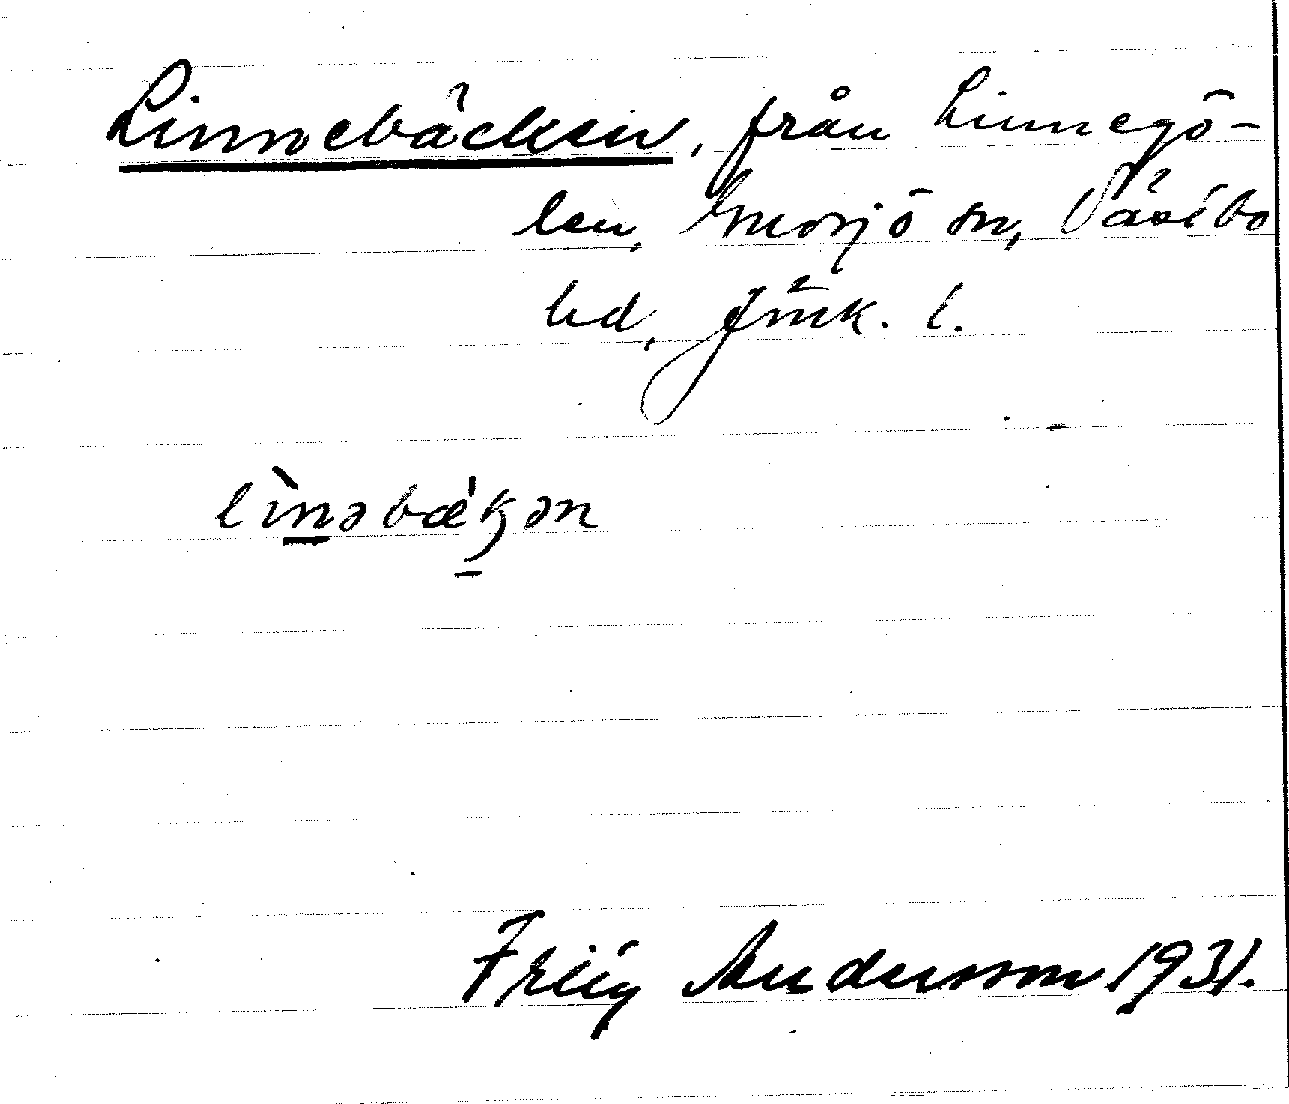 Linnebäcken, från Linnegö-
len, Gnosjö sn, Västbo
hd, Jönk. l.
lìnəbækən
Frejg Andersson 1931.